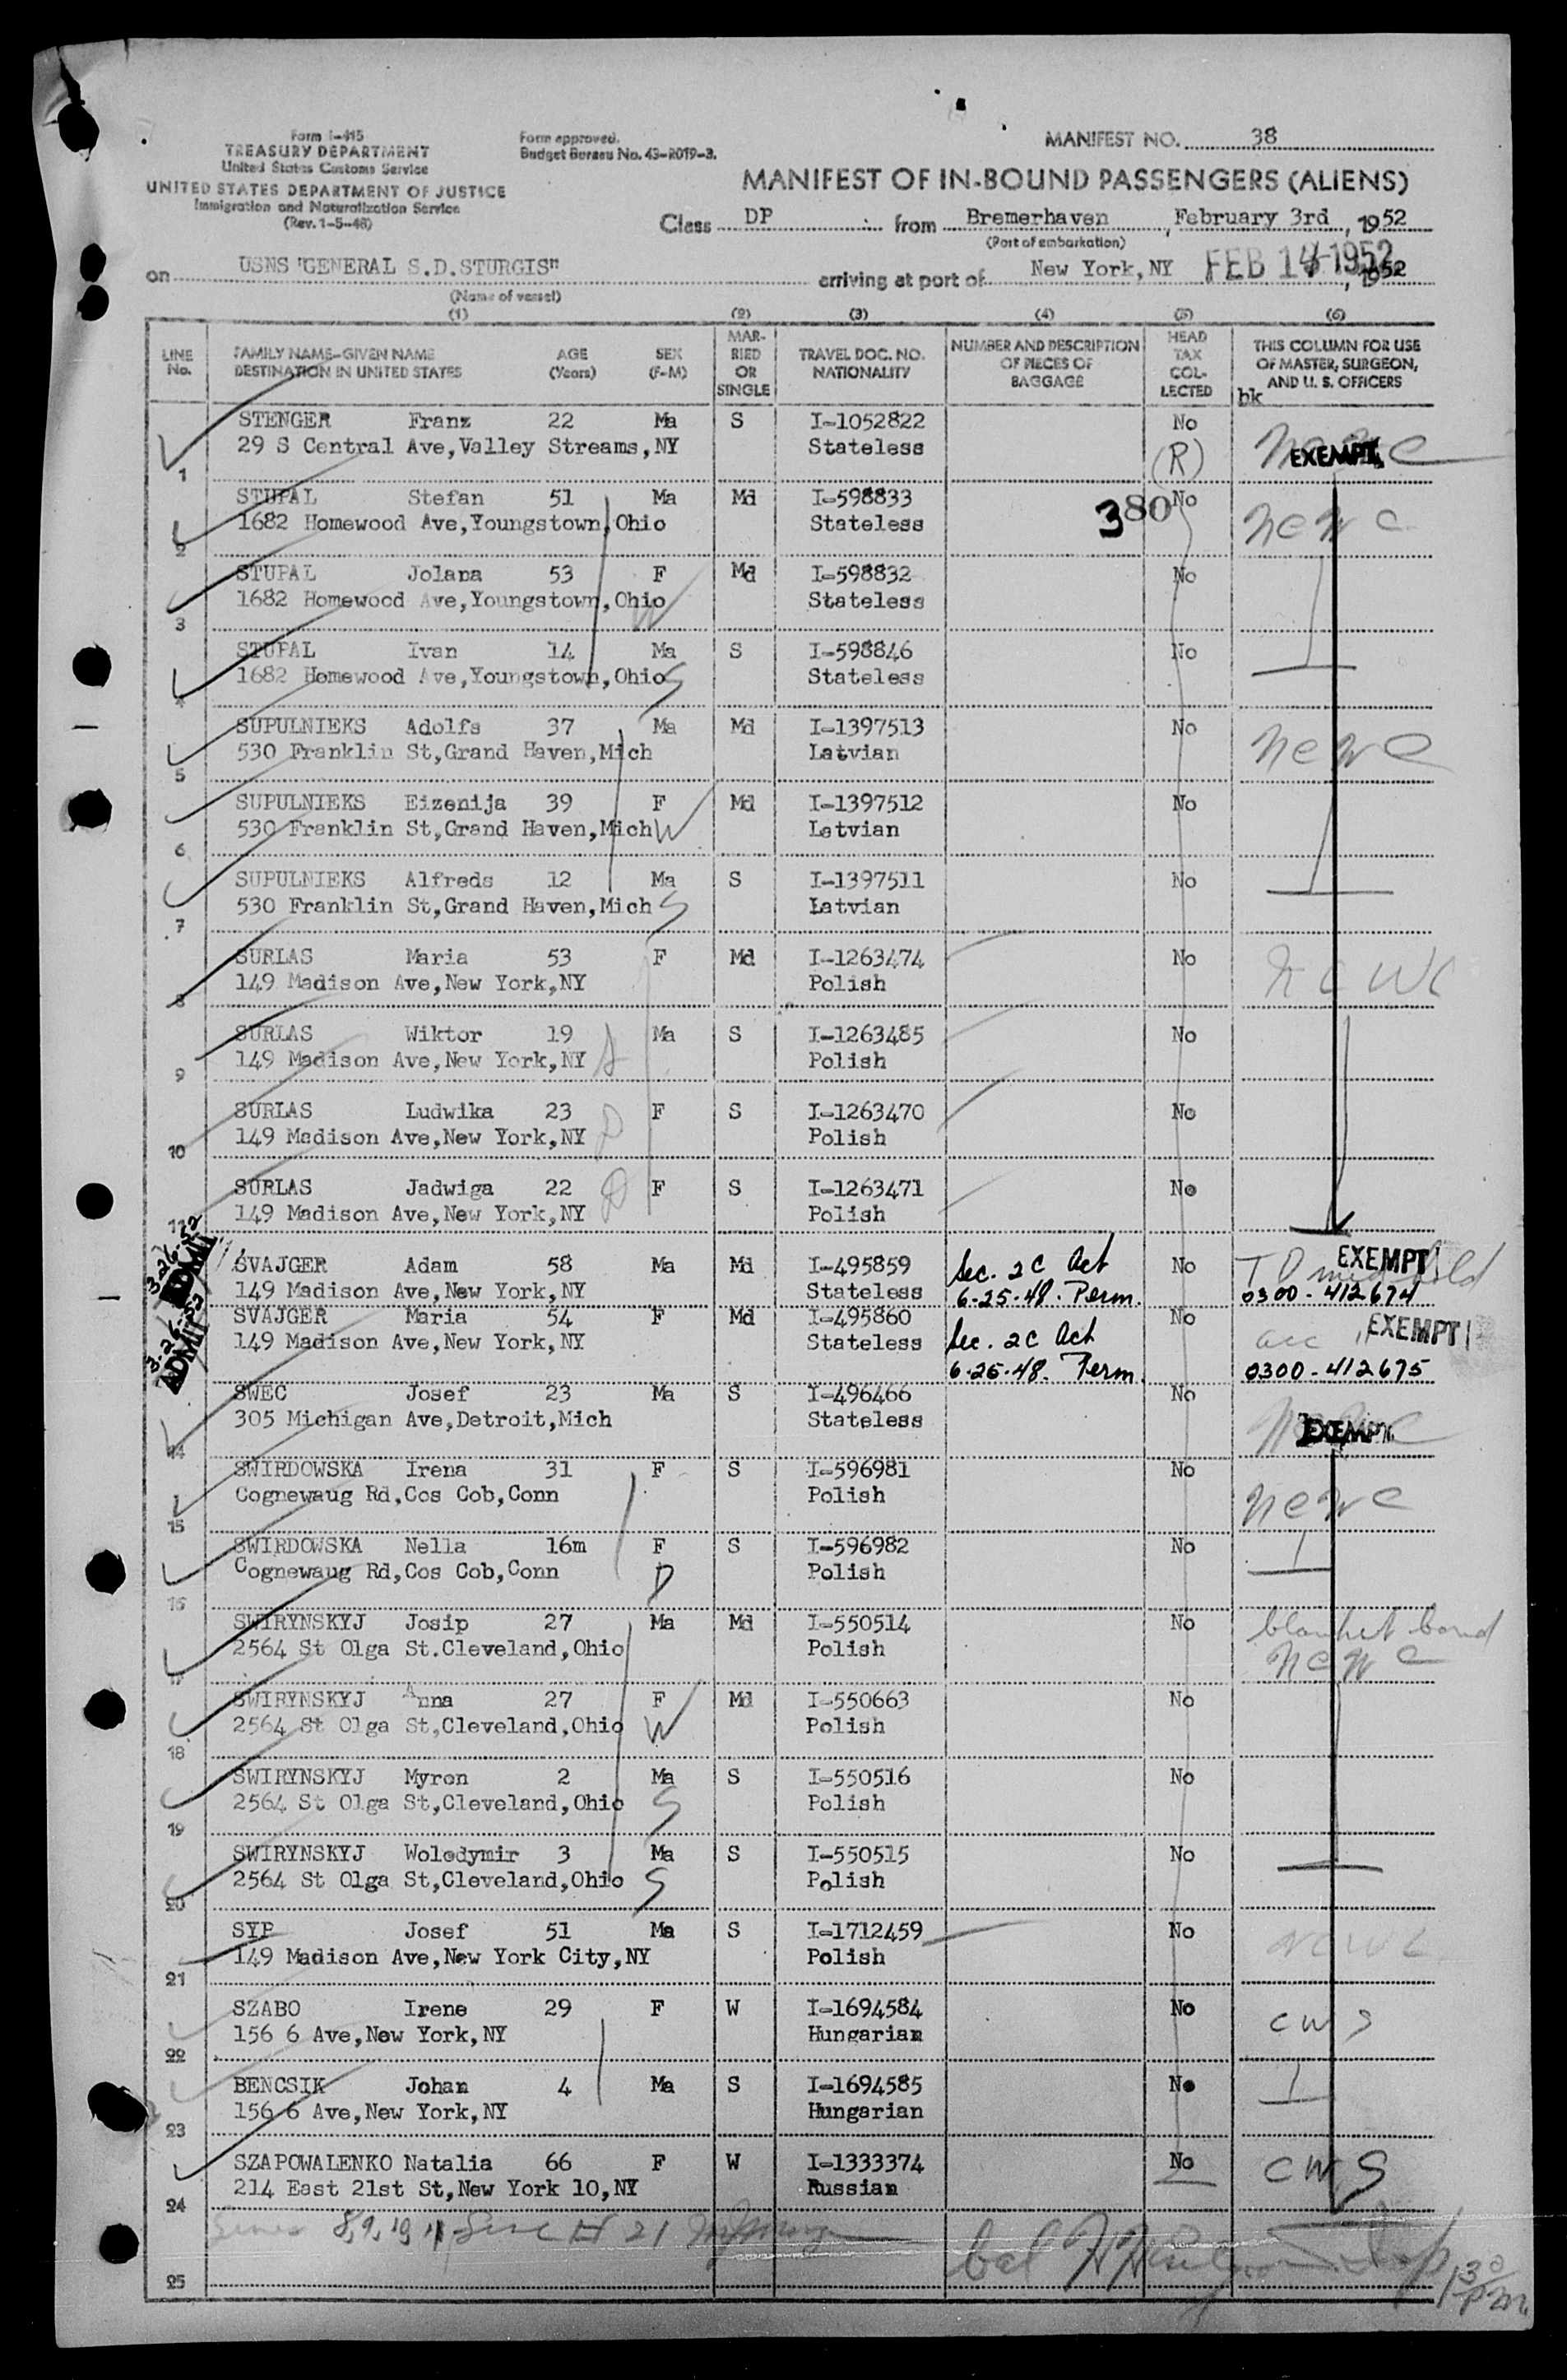 Form I-415
TREASURY DEPARTMENT
United States Customs Service
UNITED STATES DEPARTMENT OF JUSTICE
Immigration and Naturalization Service
(Rev. 1-5-48)
Form approved.
Budget Bureau No. 43-R019-3.
MANIFEST NO. 38
MANIFEST OF IN-BOUND PASSENGERS (ALIENS)
Class DP from Bremerhaven, February 3rd, 1952
(Port of embarkation)
on USNS "GENERAL S.D.STURGIS" arriving at port of New York, NY FEB 14 1952, 1952
(Name of vessel)
(1) (2) (3) (4) (5) (6)
LINE No. FAMILY NAME—GIVEN NAME DESTINATION IN UNITED STATES AGE (Years) SEX (F-M) MARRIED OR SINGLE TRAVEL DOC. NO. NATIONALITY NUMBER AND DESCRIPTION OF PIECES OF BAGGAGE HEAD TAX COLLECTED THIS COLUMN FOR USE OF MASTER, SURGEON, AND U. S. OFFICERS
bk
STENGER Franz 22 Ma S I-1052822 No
1 29 S Central Ave,Valley Streams,NY Stateless (R) NCWC EXEMPT
STUPAL Stefan 51 Ma Md I-598833 380 No
2 1682 Homewood Ave,Youngstown,Ohio Stateless NCWC
STUPAL Jolana 53 F Md I-598832 No
3 1682 Homewood Ave,Youngstown,Ohio W Stateless
STUPAL Ivan 14 Ma S I-598846 No
4 1682 Homewood Ave,Youngstown,Ohio S Stateless
SUPULNIEKS Adolfs 37 Ma Md I-1397513 No
5 530 Franklin St,Grand Haven,Mich Latvian NCWC
SUPULNIEKS Eizenija 39 F Md I-1397512 No
6 530 Franklin St,Grand Haven,Mich W Latvian
SUPULNIEKS Alfreds 12 Ma S I-1397511 No
7 530 Franklin St,Grand Haven,Mich S Latvian
SURLAS Maria 53 F Md I-1263474 No
8 149 Madison Ave,New York,NY Polish NCWC
SURLAS Wiktor 19 Ma S I-1263485 No
9 149 Madison Ave,New York,NY S Polish
SURLAS Ludwika 23 F S I-1263470 No
10 149 Madison Ave,New York,NY D Polish
SURLAS Jadwiga 22 F S I-1263471 No
11 149 Madison Ave,New York,NY D Polish
3-26-52 ADMIT SVAJGER Adam 58 Ma Md I-495859 Sec. 2C Act No EXEMPT
149 Madison Ave,New York,NY Stateless 6-25-48. Perm. 0300-412674
3-26-52 ADMIT SVAJGER Maria 54 F Md I-495860 No
149 Madison Ave,New York,NY Stateless Sec. 2C Act acc EXEMPT
6-25-48. Perm. 0300-412675
SWEC Josef 23 Ma S I-496466 No
14 305 Michigan Ave,Detroit,Mich Stateless NCWC EXEMPT
SWIRDOWSKA Irena 31 F S I-596981 No
15 Cognewaug Rd,Cos Cob,Conn Polish NCWC
SWIRDOWSKA Nella 16m F S I-596982 No
16 Cognewaug Rd,Cos Cob,Conn D Polish
SWIRYNSKYJ Josip 27 Ma Md I-550514 No blanket bond
17 2564 St Olga St.Cleveland,Ohio Polish NCWC
SWIRYNSKYJ Anna 27 F Md I-550663 No
18 2564 St Olga St,Cleveland,Ohio W Polish
SWIRYNSKYJ Myron 2 Ma S I-550516 No
19 2564 St Olga St,Cleveland,Ohio S Polish
SWIRYNSKYJ Wolodymir 3 Ma S I-550515 No
20 2564 St Olga St,Cleveland,Ohio S Polish
SYP Josef 51 Ma S I-1712459 No NCWC
21 149 Madison Ave,New York City,NY Polish
SZABO Irene 29 F W I-1694584 No CWS
22 156 6 Ave,New York,NY Hungarian
BENCSIK Johan 4 Ma S I-1694585 No
23 156 6 Ave,New York,NY Hungarian
SZAPOWALENKO Natalia 66 F W I-1333374 No CWS
24 214 East 21st St,New York 10,NY Russian
8, 9, 10, 11 21
25 130 PM